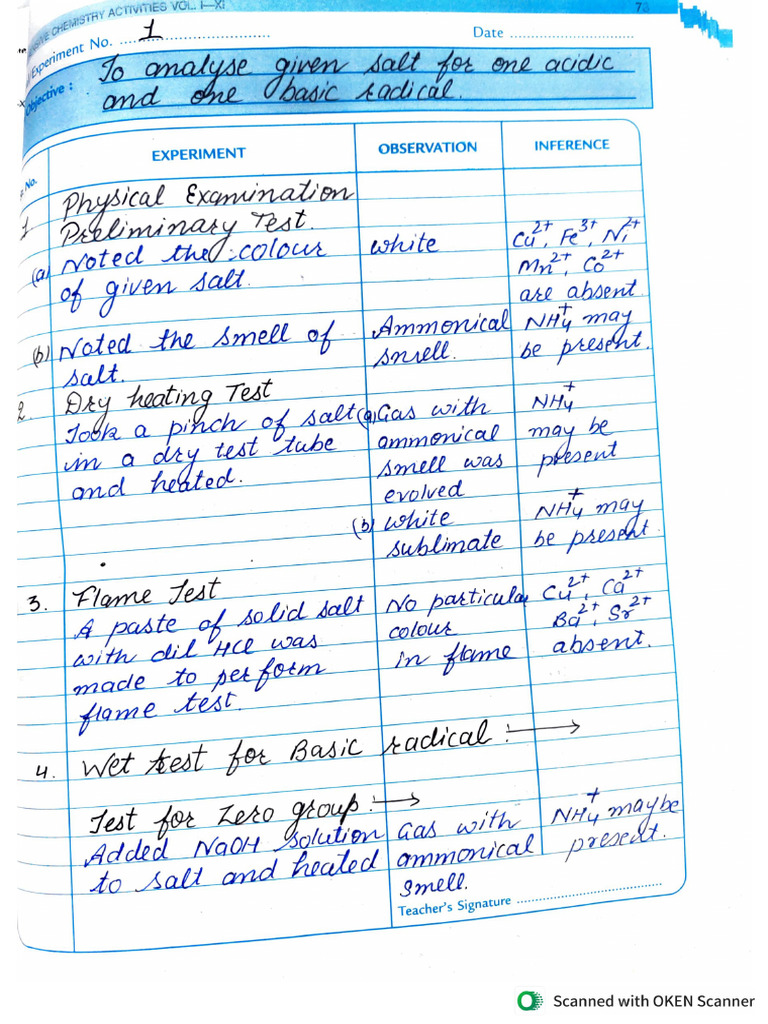 CHEMISTRY ACTIVITIES VOL. I—XI
73
Experiment No. 1
Date
Objective : To analyse given salt for one acidic
and one basic radical.
No. EXPERIMENT OBSERVATION INFERENCE
1 Physical Examination
Preliminary Test.
(a) Noted the colour white Cu²⁺, Fe³⁺, Ni²⁺
of given salt. Mn²⁺, Co²⁺
are absent
(b) Noted the smell of Ammonical NH₄⁺ may
salt. smell. be present.
2. Dry heating Test
Took a pinch of salt (a) Gas with NH₄⁺
in a dry test tube ammonical may be
and heated. smell was present
evolved
(b) white NH₄⁺ may
sublimate be present
3. Flame Test
A paste of solid salt No particular Cu²⁺, Ca²⁺
with dil HCl was colour Ba²⁺, Sr²⁺
made to perform in flame absent.
flame test.
4. Wet test for Basic radical : →
Test for Zero group : →
Added NaOH solution Gas with NH₄⁺ maybe
to salt and heated ammonical present.
smell.
Teacher's Signature
Scanned with OKEN Scanner